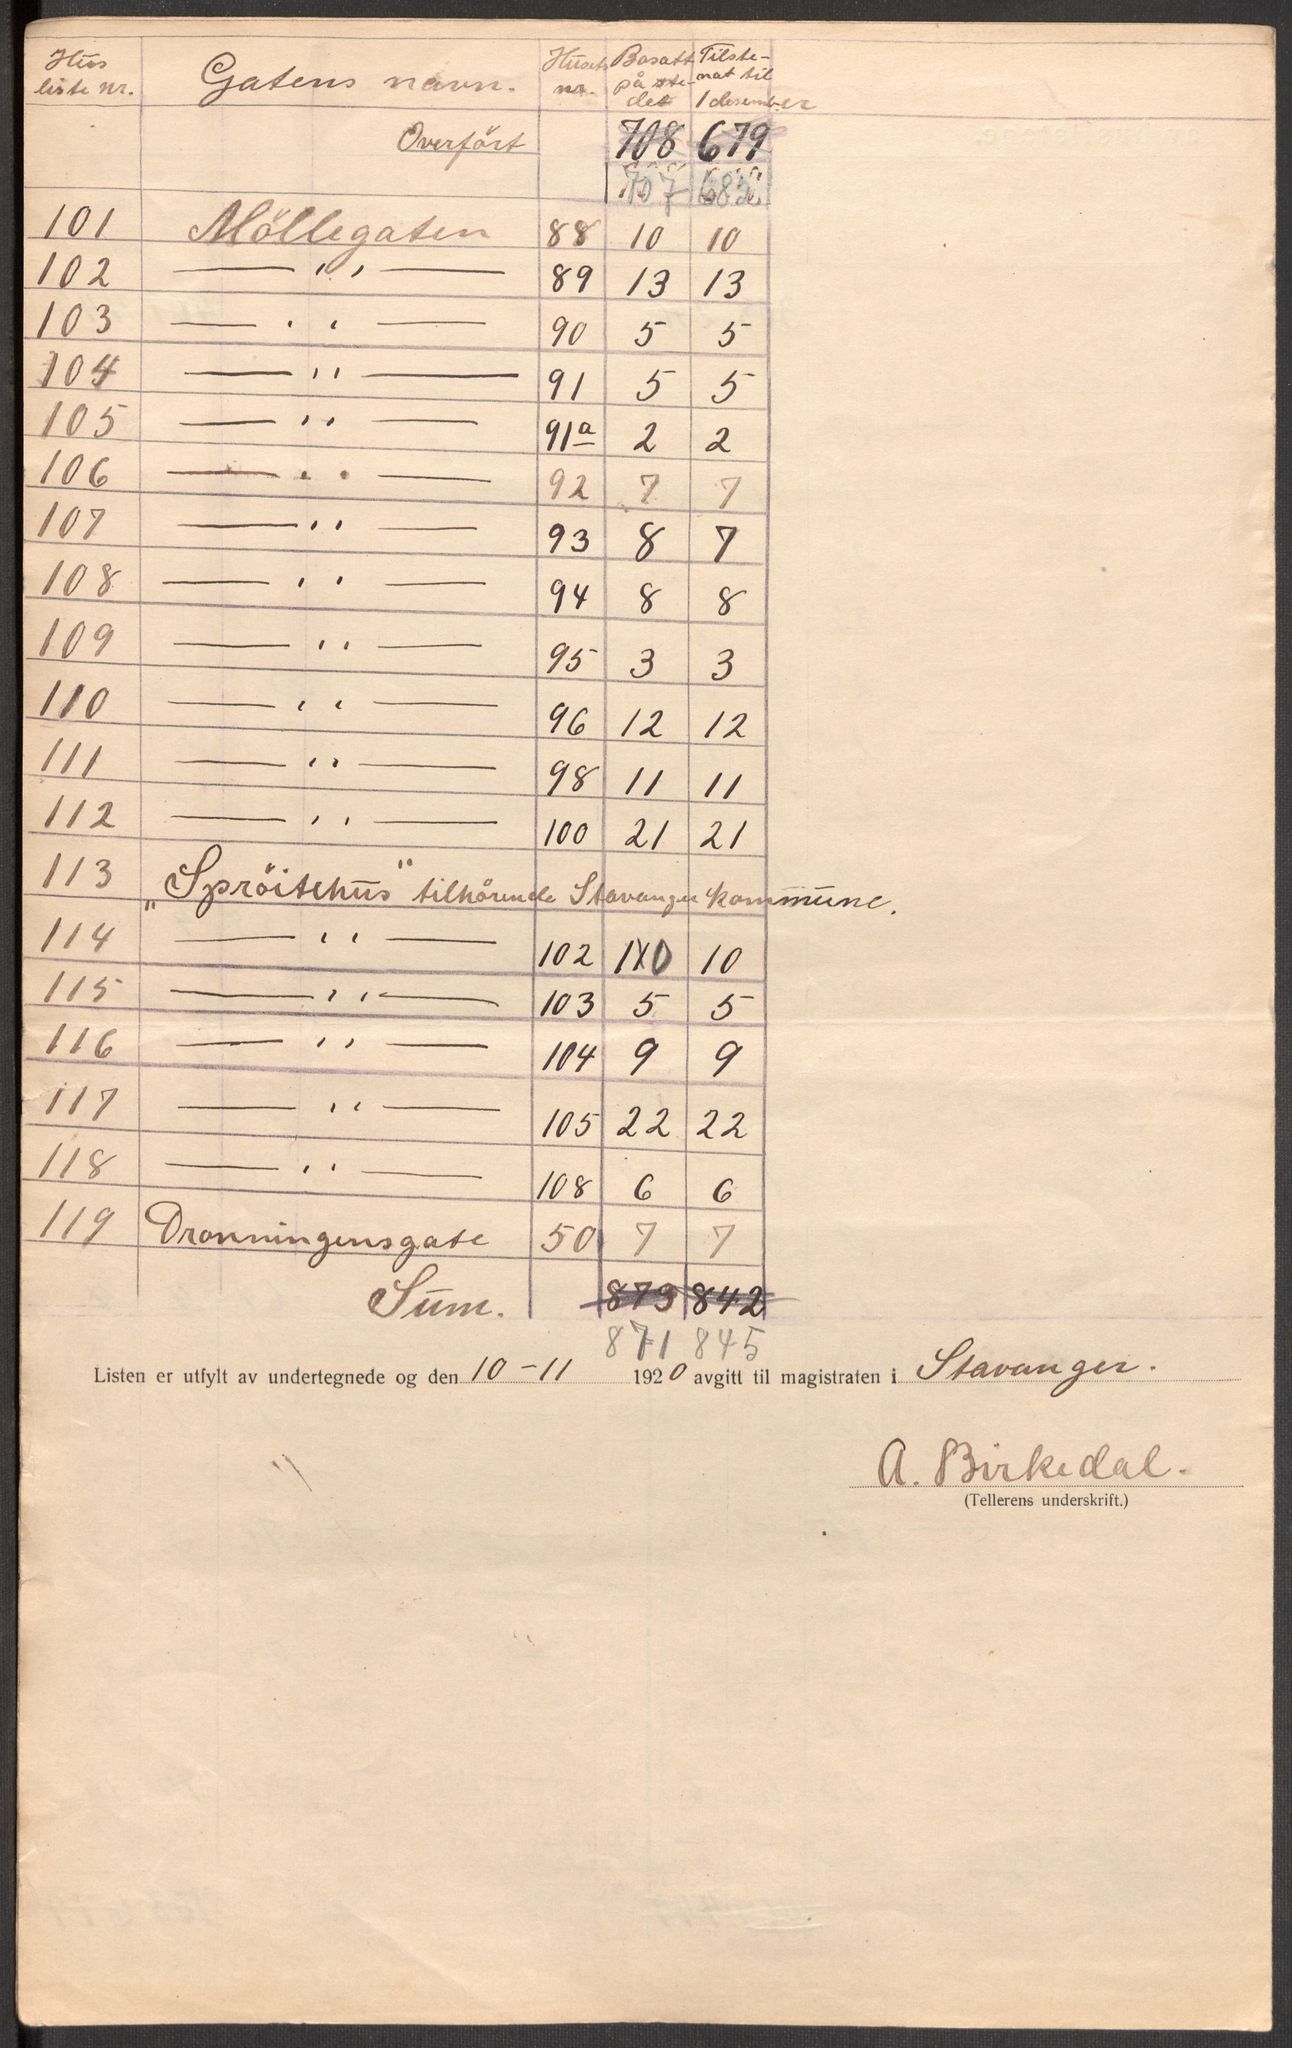 Hus liste nr. Gatens navn. Husets nr. Bosatt på stedet Tilstede­nat til 1 desember
Overfört 708 679
707 682
101 Möllegaten 88 10 10
102 — " — 89 13 13
103 — " — 90 5 5
104 — " — 91 5 5
105 — " — 91a 2 2
106 — " — 92 7 7
107 — " — 93 8 7
108 — " — 94 8 8
109 — " — 95 3 3
110 — " — 96 12 12
111 — " — 98 11 11
112 — " — 100 21 21
113 „Spröitehus" tilhörende Stavanger kommune.
114 — " — 102 10 10
115 — " — 103 5 5
116 — " — 104 9 9
117 — " — 105 22 22
118 — " — 108 6 6
119 Dronningensgate 50 7 7
Sum. 873 842
871 845
Listen er utfylt av undertegnede og den 10-11 1920 avgitt til magistraten i Stavanger.
A. Birkedal.
(Tellerens underskrift.)